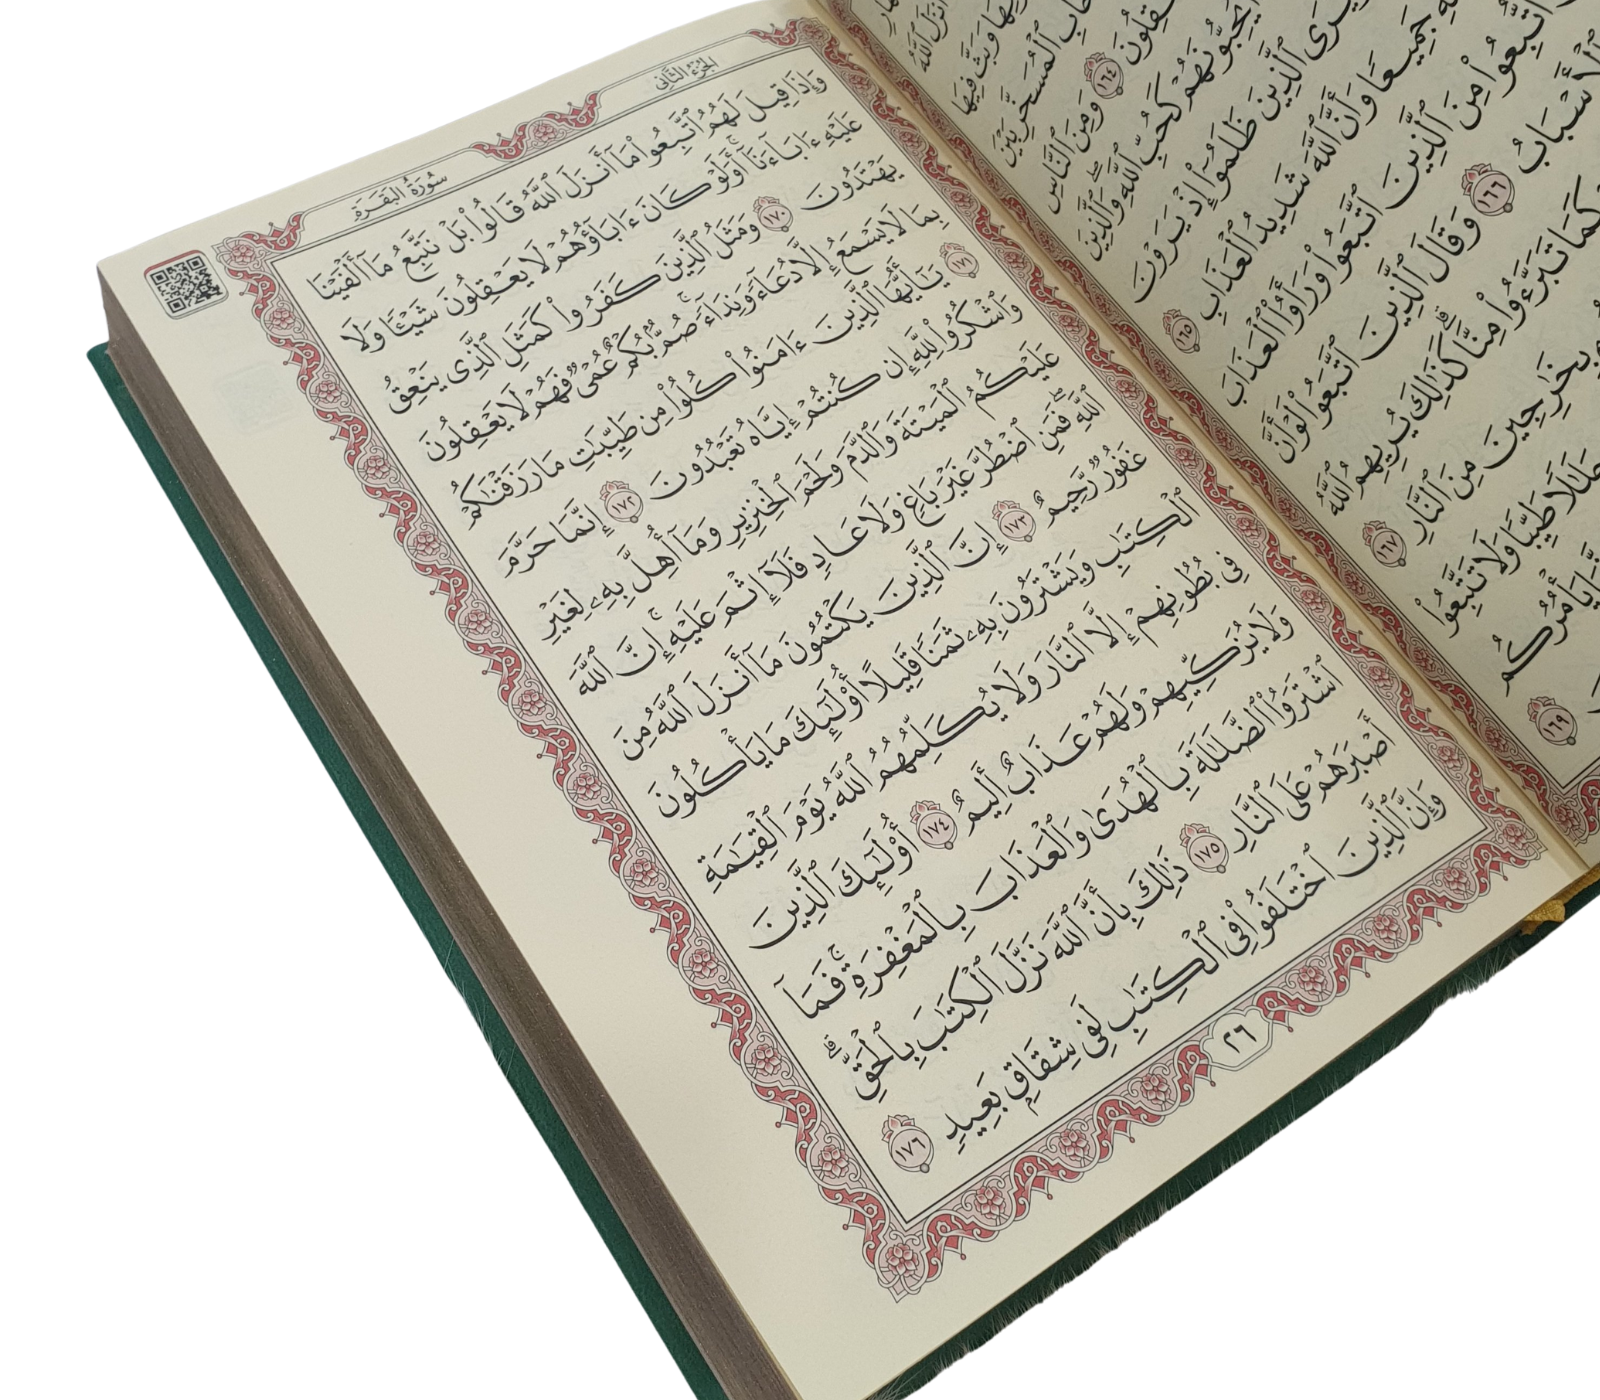 أَنزَلَ ٱللَّهُ
وَبَثَّ فِيهَا
ٱلْمُسَخَّرِ بَيْنَ
١٦٤ وَمِنَ ٱلنَّاسِ
يُحِبُّونَهُمْ كَحُبِّ ٱللَّهِ ۖ وَٱلَّذِينَ
يَرَى ٱلَّذِينَ ظَلَمُوٓا۟ إِذْ يَرَوْنَ
جَمِيعًا وَأَنَّ ٱللَّهَ شَدِيدُ ٱلْعَذَابِ ١٦٥
ٱتُّبِعُوا۟ مِنَ ٱلَّذِينَ ٱتَّبَعُوا۟ وَرَأَوُا۟ ٱلْعَذَابَ
ٱلْأَسْبَابُ ١٦٦ وَقَالَ ٱلَّذِينَ ٱتَّبَعُوا۟ لَوْ أَنَّ
كَمَا تَبَرَّءُوا۟ مِنَّا ۗ كَذَٰلِكَ يُرِيهِمُ ٱللَّهُ
بِخَٰرِجِينَ مِنَ ٱلنَّارِ ١٦٧
حَلَٰلًا طَيِّبًا وَلَا تَتَّبِعُوا۟
يَأْمُرُكُم
١٦٩
الجُزْءُ الثَّانِي
سُورَةُ البَقَرَةِ
وَإِذَا قِيلَ لَهُمُ ٱتَّبِعُوا۟ مَآ أَنزَلَ ٱللَّهُ قَالُوا۟ بَلْ نَتَّبِعُ مَآ أَلْفَيْنَا
عَلَيْهِ ءَابَآءَنَآ ۗ أَوَلَوْ كَانَ ءَابَآؤُهُمْ لَا يَعْقِلُونَ شَيْـًٔا وَلَا
يَهْتَدُونَ ١٧٠ وَمَثَلُ ٱلَّذِينَ كَفَرُوا۟ كَمَثَلِ ٱلَّذِى يَنْعِقُ
بِمَا لَا يَسْمَعُ إِلَّا دُعَآءً وَنِدَآءً ۚ صُمٌّۢ بُكْمٌ عُمْىٌ فَهُمْ لَا يَعْقِلُونَ
١٧١ يَٰٓأَيُّهَا ٱلَّذِينَ ءَامَنُوا۟ كُلُوا۟ مِن طَيِّبَٰتِ مَا رَزَقْنَٰكُمْ
وَٱشْكُرُوا۟ لِلَّهِ إِن كُنتُمْ إِيَّاهُ تَعْبُدُونَ ١٧٢ إِنَّمَا حَرَّمَ
عَلَيْكُمُ ٱلْمَيْتَةَ وَٱلدَّمَ وَلَحْمَ ٱلْخِنزِيرِ وَمَآ أُهِلَّ بِهِۦ لِغَيْرِ
ٱللَّهِ ۖ فَمَنِ ٱضْطُرَّ غَيْرَ بَاغٍ وَلَا عَادٍ فَلَآ إِثْمَ عَلَيْهِ ۚ إِنَّ ٱللَّهَ
غَفُورٌ رَّحِيمٌ ١٧٣ إِنَّ ٱلَّذِينَ يَكْتُمُونَ مَآ أَنزَلَ ٱللَّهُ مِنَ
ٱلْكِتَٰبِ وَيَشْتَرُونَ بِهِۦ ثَمَنًا قَلِيلًا ۙ أُو۟لَٰٓئِكَ مَا يَأْكُلُونَ
فِى بُطُونِهِمْ إِلَّا ٱلنَّارَ وَلَا يُكَلِّمُهُمُ ٱللَّهُ يَوْمَ ٱلْقِيَٰمَةِ
وَلَا يُزَكِّيهِمْ وَلَهُمْ عَذَابٌ أَلِيمٌ ١٧٤ أُو۟لَٰٓئِكَ ٱلَّذِينَ
ٱشْتَرَوُا۟ ٱلضَّلَٰلَةَ بِٱلْهُدَىٰ وَٱلْعَذَابَ بِٱلْمَغْفِرَةِ ۚ فَمَآ
أَصْبَرَهُمْ عَلَى ٱلنَّارِ ١٧٥ ذَٰلِكَ بِأَنَّ ٱللَّهَ نَزَّلَ ٱلْكِتَٰبَ بِٱلْحَقِّ ۗ
وَإِنَّ ٱلَّذِينَ ٱخْتَلَفُوا۟ فِى ٱلْكِتَٰبِ لَفِى شِقَاقٍۭ بَعِيدٍ ١٧٦
٢٦